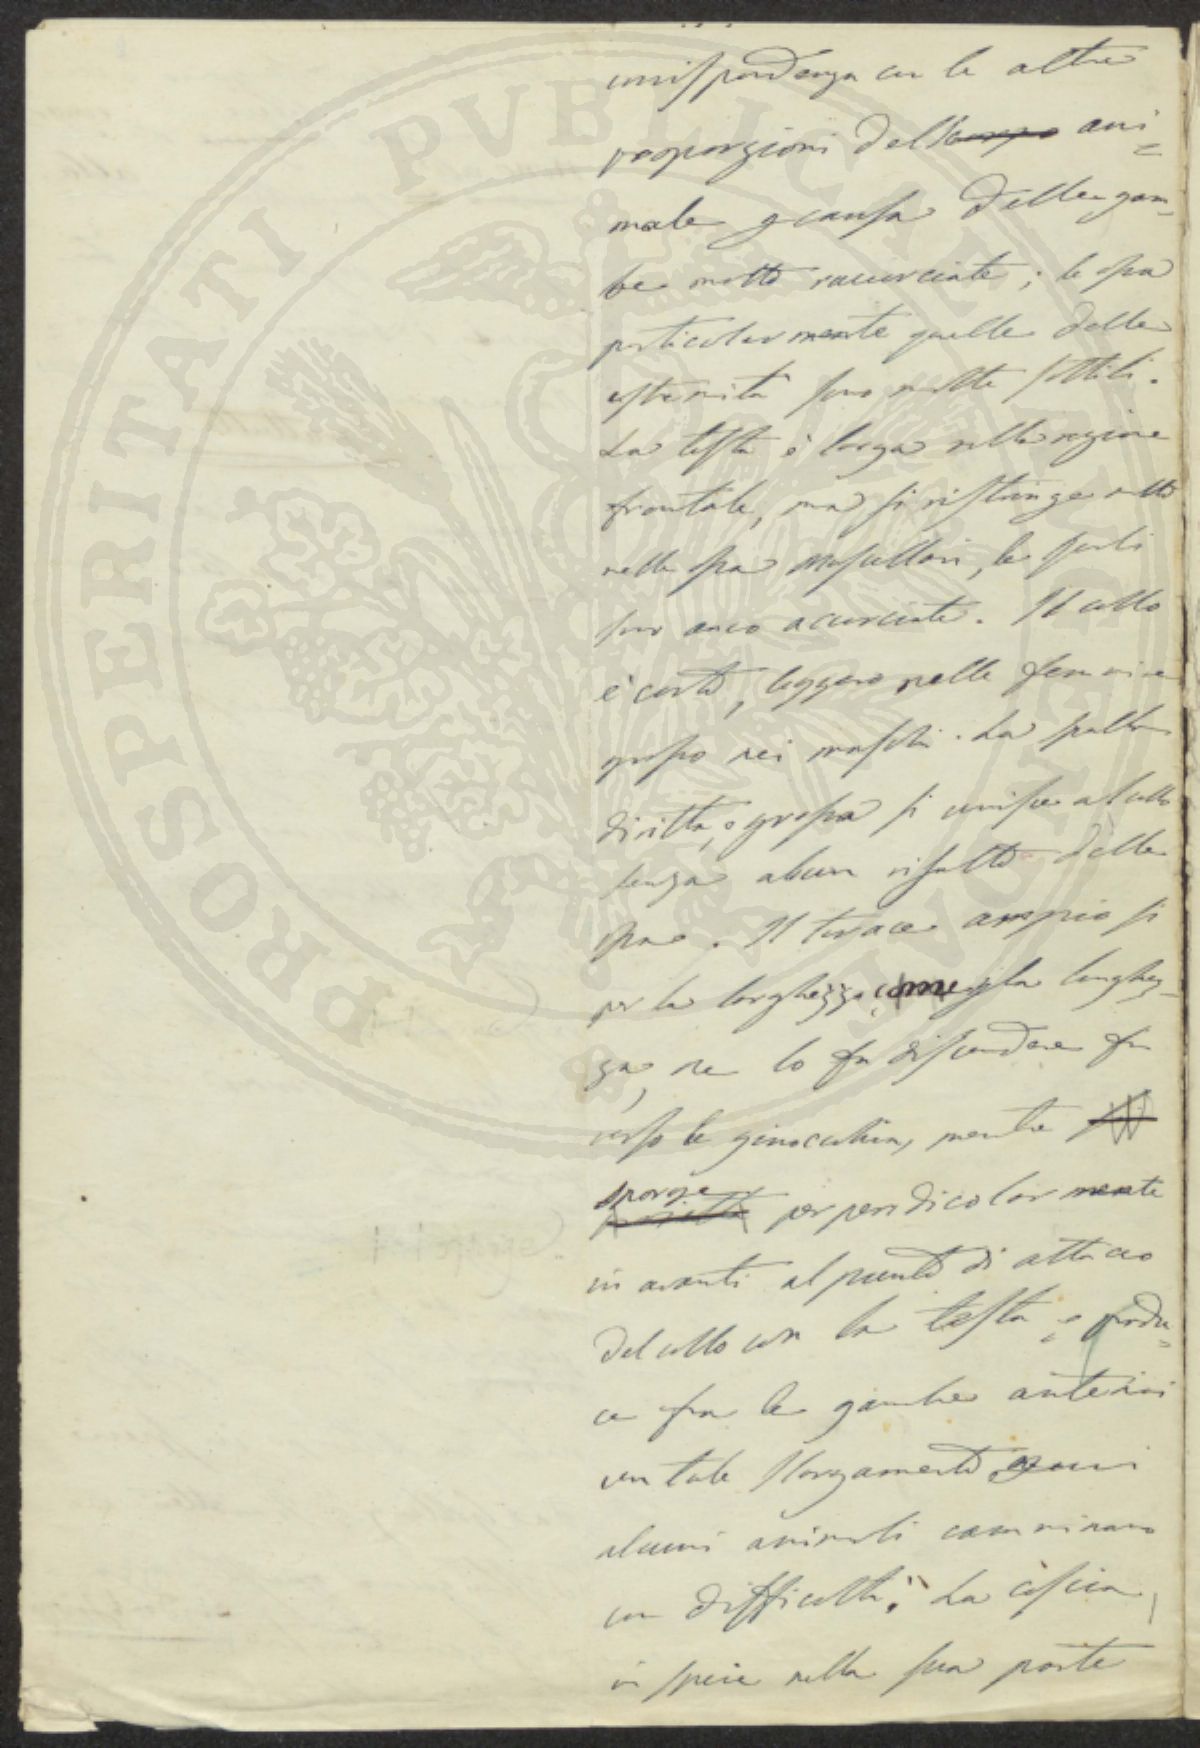 corrispondenza con le altre
proporzioni dell corpo ani=
male p causa delle gam-
be molto raccorciate; le ossa
particolarmente quelle delle
estremità sono molto sottili.
La testa è larga nella regione
frontale, ma si ristringe molto
nelle ossa mascellari, le quali
sono anco accorciate. Il collo
è corto, leggero nelle femmine
grosso nei maschi. La spalla
diritta, e grossa si unisce al collo
senza alcun risalto delle
ossa. Il torace ampio sì
per la larghezza, come per la lunghez-
za, ne lo fa discendere fin
verso le ginocchia, mentre
sporge perpendicolarmente
in avanti al punto di attacco
del collo con la testa, e produ=
ce fra le gambe anteriori
un tale slargamento,
alcuni animali camminano
con difficoltà. La coscia,
in specie nella sua parte
PROSPERITATI PVBLICAE AVGENDAE